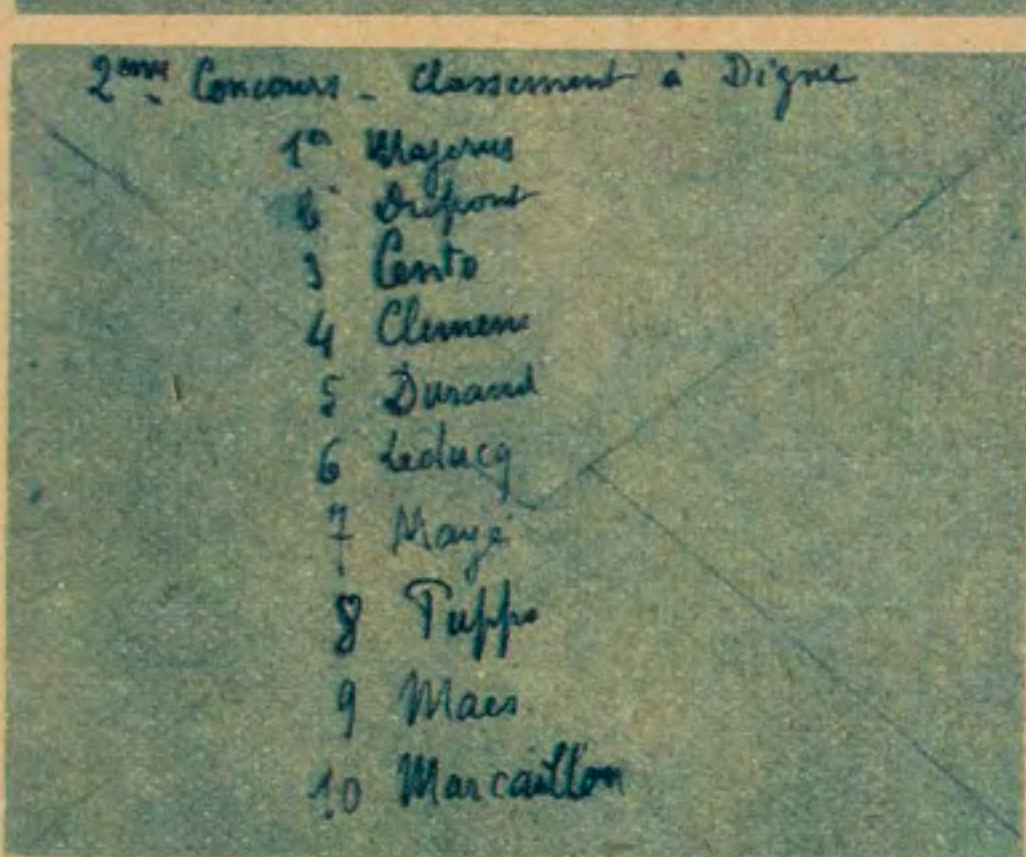 2ème Concours - Classement à Digne
1er Majerus
2 Dupont
3 Cento
4 Clemens
5 Durand
6 Leducq
7 Mayé
8 Puppo
9 Maes
10 Marcaillon